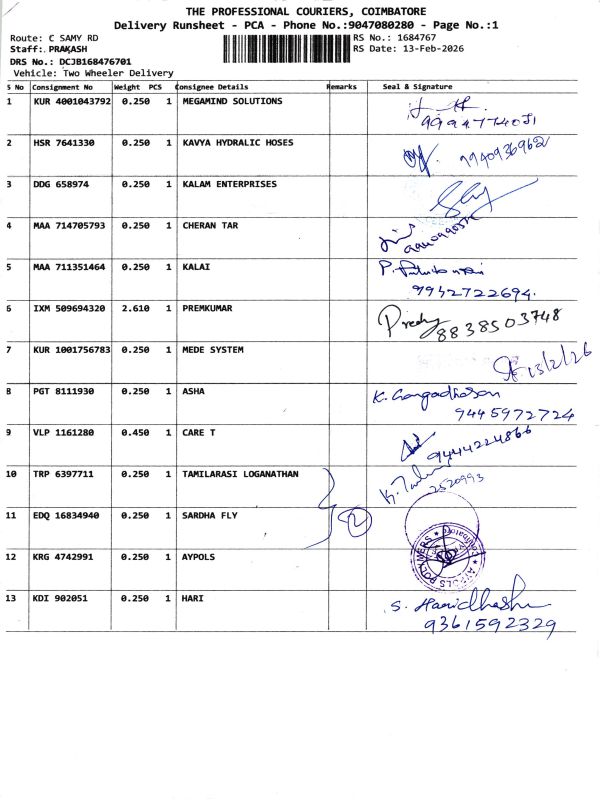 THE PROFESSIONAL COURIERS, COIMBATORE
Delivery Runsheet - PCA - Phone No.:9047080280 - Page No.:1
Route: C SAMY RD
RS No.: 1684767
Staff: PRAKASH
RS Date: 13-Feb-2026
DRS No.: DCJB168476701
Vehicle: Two Wheeler Delivery
S No Consignment No Weight PCS Consignee Details Remarks Seal & Signature
1 KUR 4001043792 0.250 1 MEGAMIND SOLUTIONS
2 HSR 7641330 0.250 1 KAVYA HYDRALIC HOSES 9940936962
3 DDG 658974 0.250 1 KALAM ENTERPRISES
4 MAA 714705793 0.250 1 CHERAN TAR
5 MAA 711351464 0.250 1 KALAI P.
9942722694.
6 IXM 509694320 2.610 1 PREMKUMAR 8838503748
7 KUR 1001756783 0.250 1 MEDE SYSTEM 13/2/26
8 PGT 8111930 0.250 1 ASHA K. Gangadharan
9445972724
9 VLP 1161280 0.450 1 CARE T 9444224866
10 TRP 6397711 0.250 1 TAMILARASI LOGANATHAN K.
2520993
11 EDQ 16834940 0.250 1 SARDHA FLY
2
12 KRG 4742991 0.250 1 AYPOLS AYPOLS POLYMERS
13 KDI 902051 0.250 1 HARI S. Haridhashu
9361592329